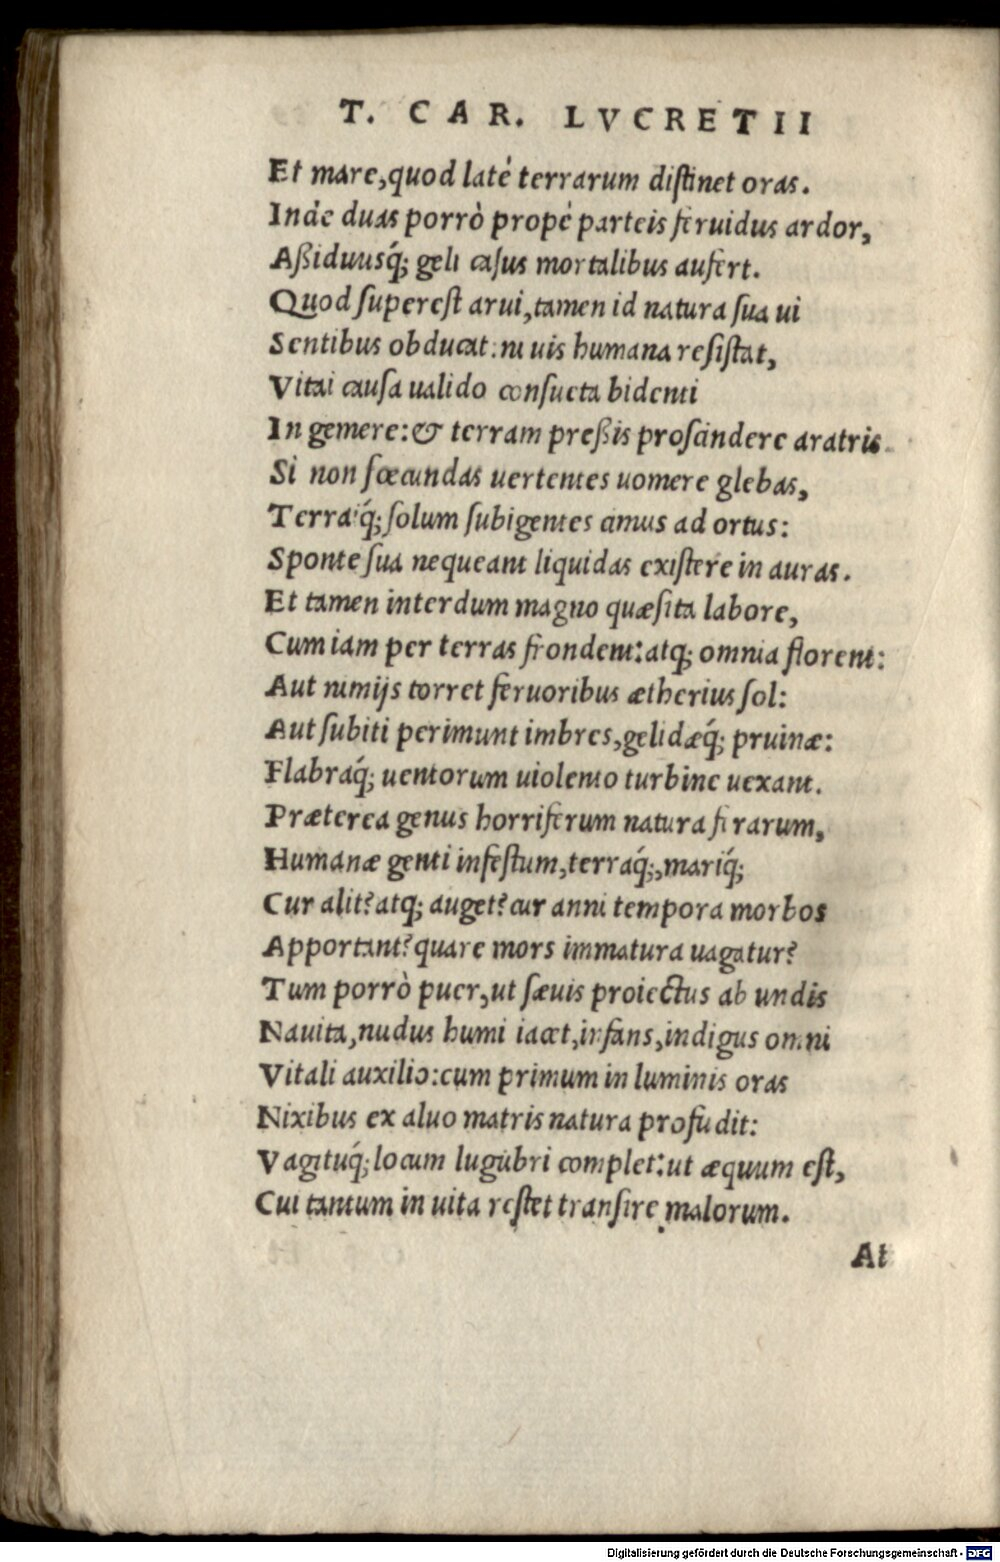 T. CAR. LVCRETII
Et mare, quod latè terrarum distinet oras.
Inde duas porrò propè parteis feruidus ardor,
Aßiduusq́; geli casus mortalibus aufert.
Quod superest arui, tamen id natura sua ui
Sentibus obducat: ni uis humana resistat,
Vitai causa ualido consueta bidenti
In gemere: & terram preßis proscindere aratris.
Si non fœcundas uertentes uomere glebas,
Terraiq́; solum subigentes cimus ad ortus:
Sponte sua nequeant liquidas existere in auras.
Et tamen interdum magno quæsita labore,
Cum iam per terras frondent: atq; omnia florent:
Aut nimijs torret feruoribus ætherius sol:
Aut subiti perimunt imbres, gelidæq́; pruinæ:
Flabraq́; uentorum uiolento turbine uexant.
Præterea genus horriferum natura ferarum,
Humanæ genti infestum, terraq́;, mariq́;
Cur alit? atq; auget? cur anni tempora morbos
Apportant? quare mors immatura uagatur?
Tum porrò puer, ut sæuis proiectus ab undis
Nauita, nudus humi iacet, infans, indigus omni
Vitali auxilio: cum primum in luminis oras
Nixibus ex aluo matris natura profudit:
Vagituq́; locum lugubri complet: ut æquum est,
Cui tantum in uita restet transire malorum.
At
Digitalisierung gefördert durch die Deutsche Forschungsgemeinschaft - DFG